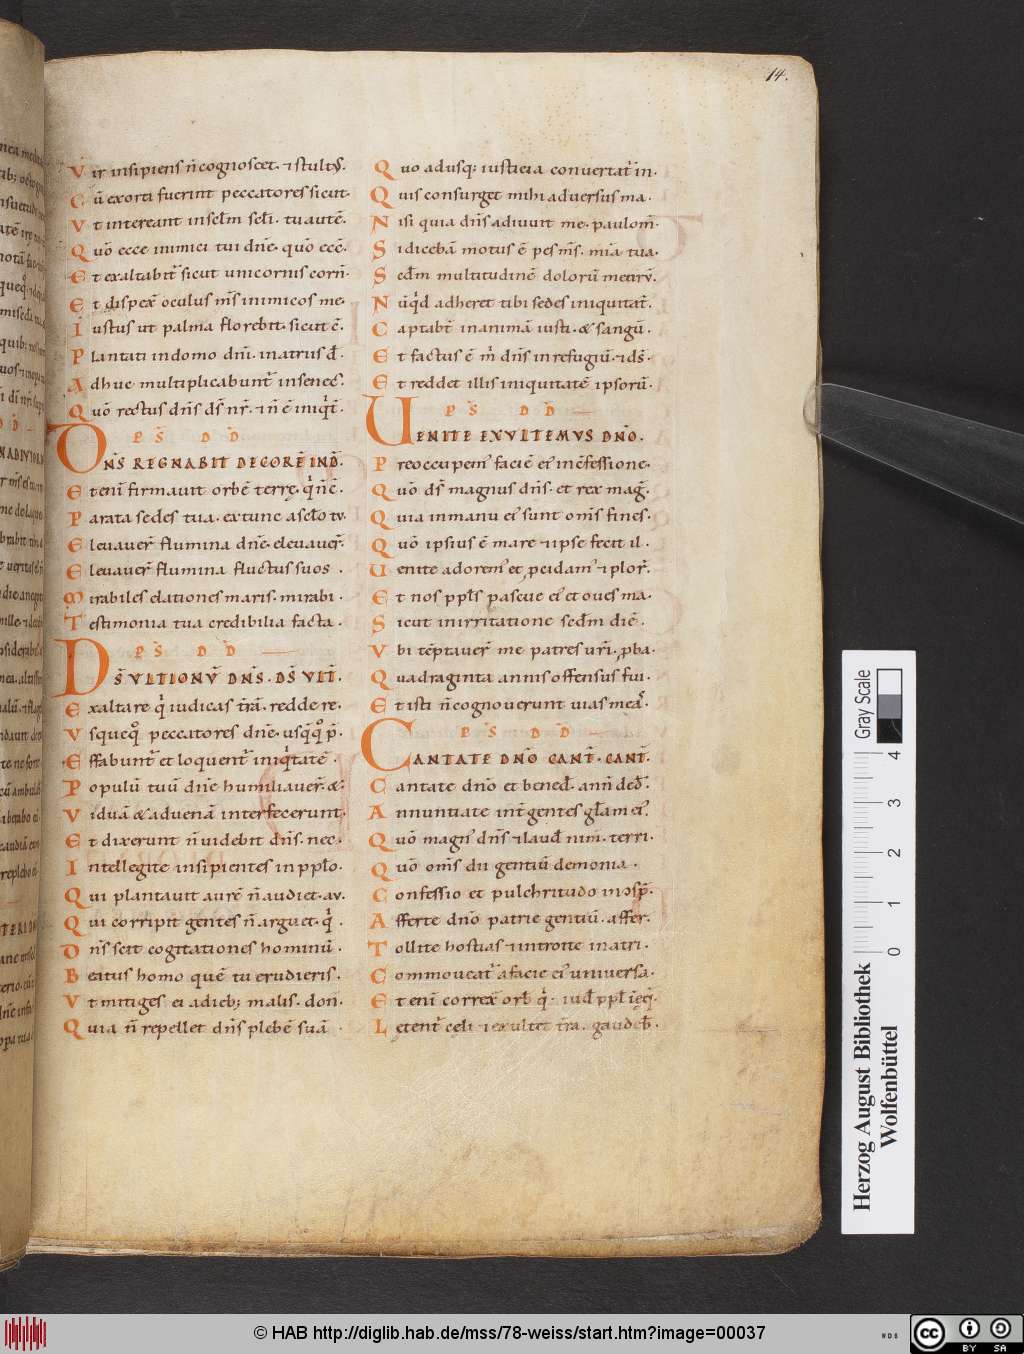 14.
Vir insipiens n̄ cognoscet. ⁊ stultꝰ.
Cū exorti fuerint peccatores sicut.
Vt intereant in sel̄m sel̄i. tu autē.
Quō ecce inimici tui dn̄e. quō eccē.
Et exaltabit᷑ sicut unicornis corn̄.
Et dispex̄ oculus m̄s inimicos me.
Iustus ut palma florebit. sicut c̄.
Plantati in domo dn̄i. in atriis d̄.
Adhuc multiplicabunt᷑ in senec̄.
Quō rectus dn̄s ds̄ nr̄. ⁊ n̄ ē iniq̄t̄.
PS̄ DD̄
DNS̄ REGNABIT DECORĒ IND̄.
Etenī firmauit orbē terrę. q̄ n̄ c̄.
Parata sedes tua. ex tunc a sclō tu.
Eleuauer̄ flumina dn̄e. eleuauer̄.
Eleuauer̄ flumina fluctus suos.
Mirabiles elationes maris. mirabi.
Testimonia tua credibilia facta.
PS̄ DD̄
DS̄ VLTIONV̄ DN̄S. DS̄ VLT̄.
Exaltare q̄ iudicas tr̄ā. redde re.
Vsquequo peccatores dn̄e. usq̄q̄ p̄.
Effabunt᷑ et loquent᷑ iniq̄tatē.
Populū tuū dn̄e humiliauer̄. &.
Viduā & aduenā interfecerunt.
Et dixerunt n̄ uidebit dn̄s. nec.
Intellegite insipientes in pplō.
Qui plantauit aurē n̄ audiet. au.
Qui corripit gentes n̄ arguet. q̄.
Dn̄s scit cogitationes hominū.
Beatus homo quē tu erudieris.
Vt mitiges ei a dieb; malis. don̄.
Quia n̄ repellet dn̄s plebē suā.
Quo adusq; iusticia conuertat᷑ in.
Quis consurget mihi aduersus ma.
Nisi quia dn̄s adiuuit me. paulom̄.
Si dicebā motus ē pes m̄s. mīa tua.
Sed̄m multitudinē dolorū meorū.
Nūq̄d adheret tibi sedes iniquitat̄.
Captabt̄ in animā iusti. & sangū.
Et factus ē m̄ dn̄s in refugiū. ⁊ ds̄.
Et reddet illis iniquitatē ipsorū.
PS̄ DD̄
UENITE EXVLTEMVS DN̄O.
Preoccupem᷑ faciē ei᷑ in c̄fessione.
Quō ds̄ magnus dn̄s. et rex maḡ.
Quia in manu ei᷑ sunt om̄s fines.
Quō ipsius ē mare ⁊ ipse fecit il.
Uenite adorem᷑ et p̱cidam᷑ ⁊ plor̄.
Et nos ppl̄s pascue ei᷑ et oues ma.
Sicut in irritatione sed̄m diē.
Vbi tēptauer̄ me patres ur̄i, pba.
Quadraginta annis offensus fui.
Et isti n̄ cognouerunt uias meaſ.
PS̄ DD̄
CANTATE DN̄O CANT̄. CANT̄.
Cantate dn̄o et bened̄. ann̄ deb̄.
Annuntiate int̄ gentes gl̄am ei᷑.
Quō magn᷑ dn̄s ⁊ laud̄ nim̄. terri.
Quō om̄s dii gentiū demonia.
Confessio et pulchritudo in csp̄.
Afferte dn̄o patrie gentiū. affer̄.
Tollite hostias ⁊ introite in atri.
Commoueat᷑ a facie ei᷑ uniuersa.
Etenī correx̄ orb̄ q̄. iud̄ ppl̄
Lętent᷑ cęli ⁊ exultet tr̄a. gaudeb̄.
Gray Scale
0 1 2 3 4
Herzog August Bibliothek
Wolfenbüttel
© HAB http://diglib.hab.de/mss/78-weiss/start.htm?image=00037
WDB
cc BY SA